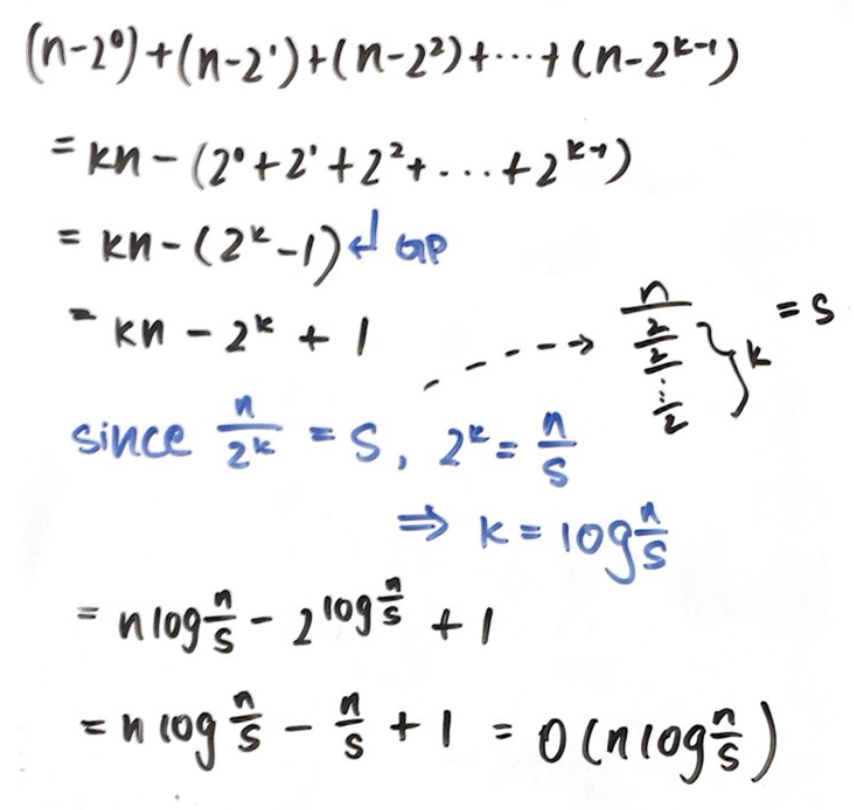 (n-2⁰)+(n-2¹)+(n-2²)+...+(n-2ᵏ⁻¹)
= kn - (2⁰+2¹+2²+...+2ᵏ⁻¹)
= kn - (2ᵏ-1) ↲ GP
= kn - 2ᵏ + 1
----→ n/(2/2/⋮/2) } k = S
since n/2ᵏ = S, 2ᵏ = n/S
⇒ k = log n/S
= n log n/S - 2^(log n/S) + 1
= n log n/S - n/S + 1 = O(n log n/S)